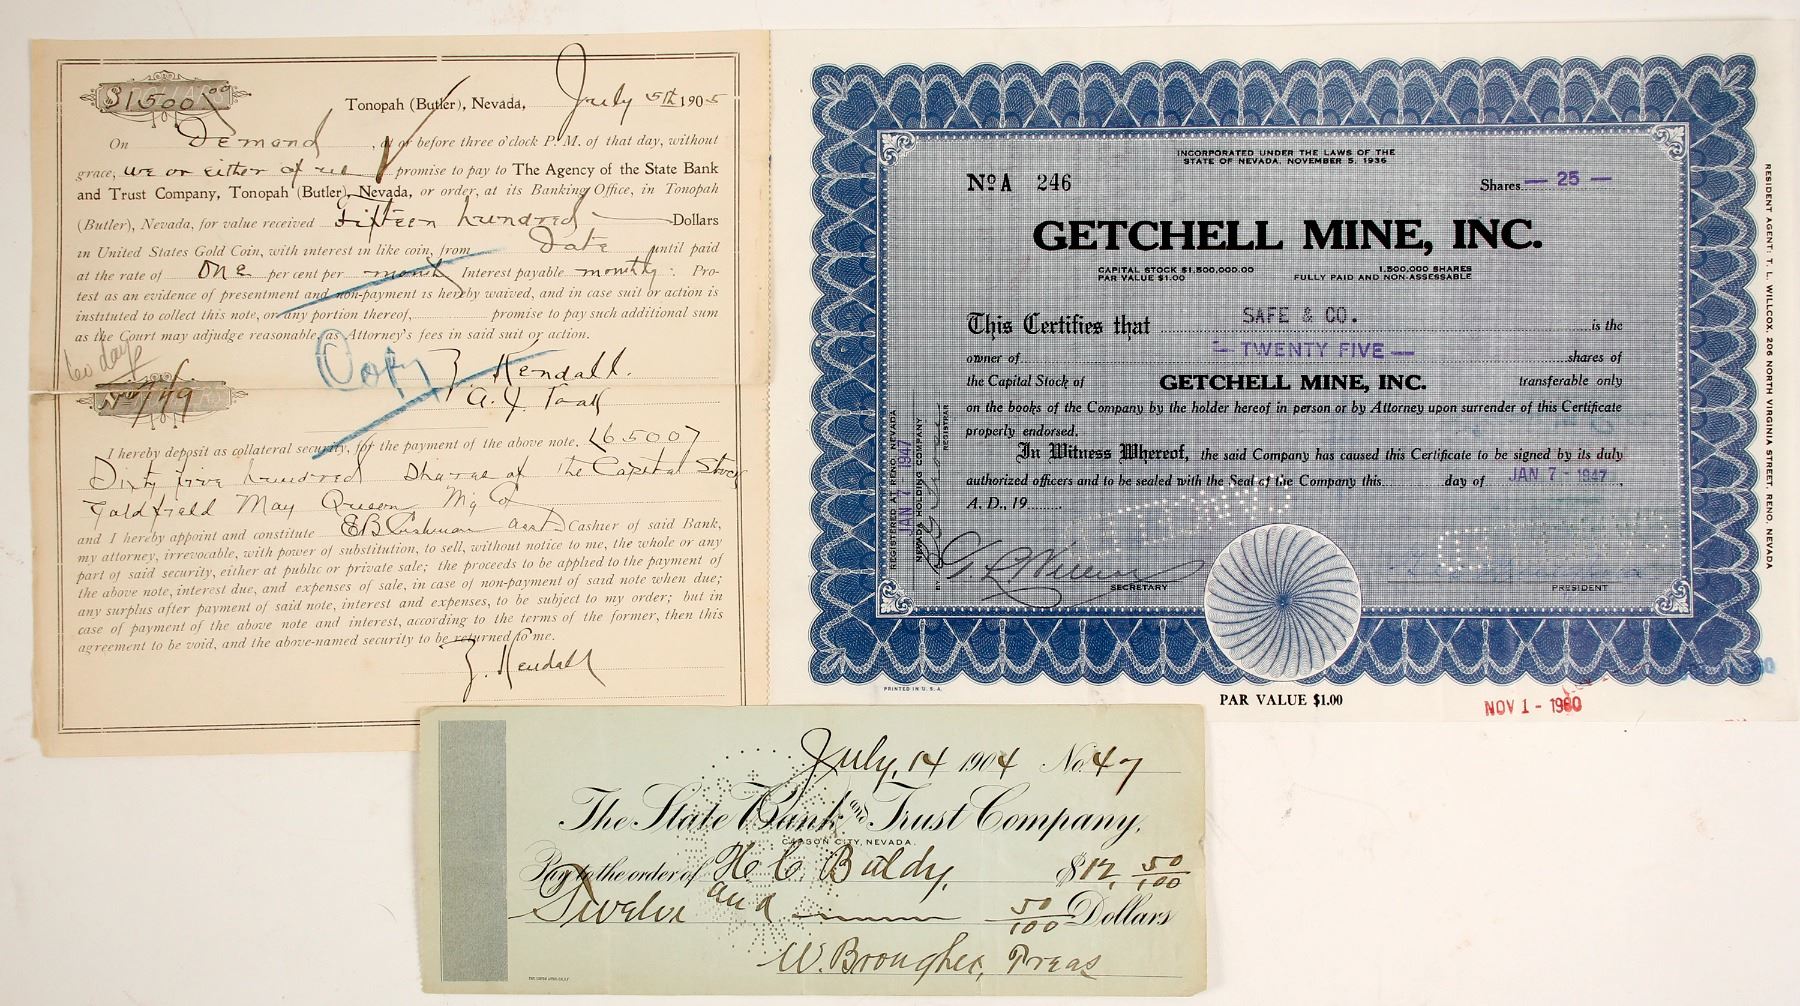 $1500.00
Tonopah (Butler), Nevada, July 5th 1905
On Demand, at or before three o'clock P. M. of that day, without
grace, we or either of us promise to pay to The Agency of the State Bank
and Trust Company, Tonopah (Butler), Nevada, or order, at its Banking Office, in Tonopah
(Butler), Nevada, for value received fifteen hundred Dollars
in United States Gold Coin, with interest in like coin, from Date until paid
at the rate of one per cent per month Interest payable monthly. Pro-
test as an evidence of presentment and non-payment is hereby waived, and in case suit or action is
instituted to collect this note, or any portion thereof, promise to pay such additional sum
as the Court may adjudge reasonable, as Attorney's fees in said suit or action.
60 days
Copy
Z. Kendall.
No. 749
I hereby deposit as collateral security, for the payment of the above note, (6500)
Sixty five hundred Shares of the Capital Stock
Goldfield May Queen Mg Co
and I hereby appoint and constitute E B Cushman asst Cashier of said Bank,
my attorney, irrevocable, with power of substitution, to sell, without notice to me, the whole or any
part of said security, either at public or private sale; the proceeds to be applied to the payment of
the above note, interest due, and expenses of sale, in case of non-payment of said note when due;
any surplus after payment of said note, interest and expenses, to be subject to my order; but in
case of payment of the above note and interest, according to the terms of the former, then this
agreement to be void, and the above-named security to be returned to me.
Z. Kendall
INCORPORATED UNDER THE LAWS OF THE
STATE OF NEVADA, NOVEMBER 5, 1936
No A 246
Shares — 25 —
GETCHELL MINE, INC.
CAPITAL STOCK $1,500,000.00
PAR VALUE $1.00
1,500,000 SHARES
FULLY PAID AND NON-ASSESSABLE
This Certifies that SAFE & CO. is the
owner of — TWENTY FIVE — shares of
the Capital Stock of GETCHELL MINE, INC. transferable only
on the books of the Company by the holder hereof in person or by Attorney upon surrender of this Certificate
properly endorsed.
In Witness Whereof, the said Company has caused this Certificate to be signed by its duly
authorized officers and to be sealed with the Seal of the Company this day of JAN 7 - 1947,
A. D., 19
CANCELLED
CANCELLED
SECRETARY
PRESIDENT
REGISTERED AT RENO, NEVADA
JAN 7 - 1947
NEVADA HOLDING COMPANY
REGISTRAR
BY
RESIDENT AGENT: T. L. WILLCOX, 206 NORTH VIRGINIA STREET, RENO, NEVADA
PRINTED IN U. S. A.
PAR VALUE $1.00
NOV 1 - 1960
July, 14 1904 No. 47
The State Bank and Trust Company,
CARSON CITY, NEVADA.
Pay to the order of H. C. Baldy, $12, 50/100
Twelve and 50/100 Dollars
W. Brougher, Treas